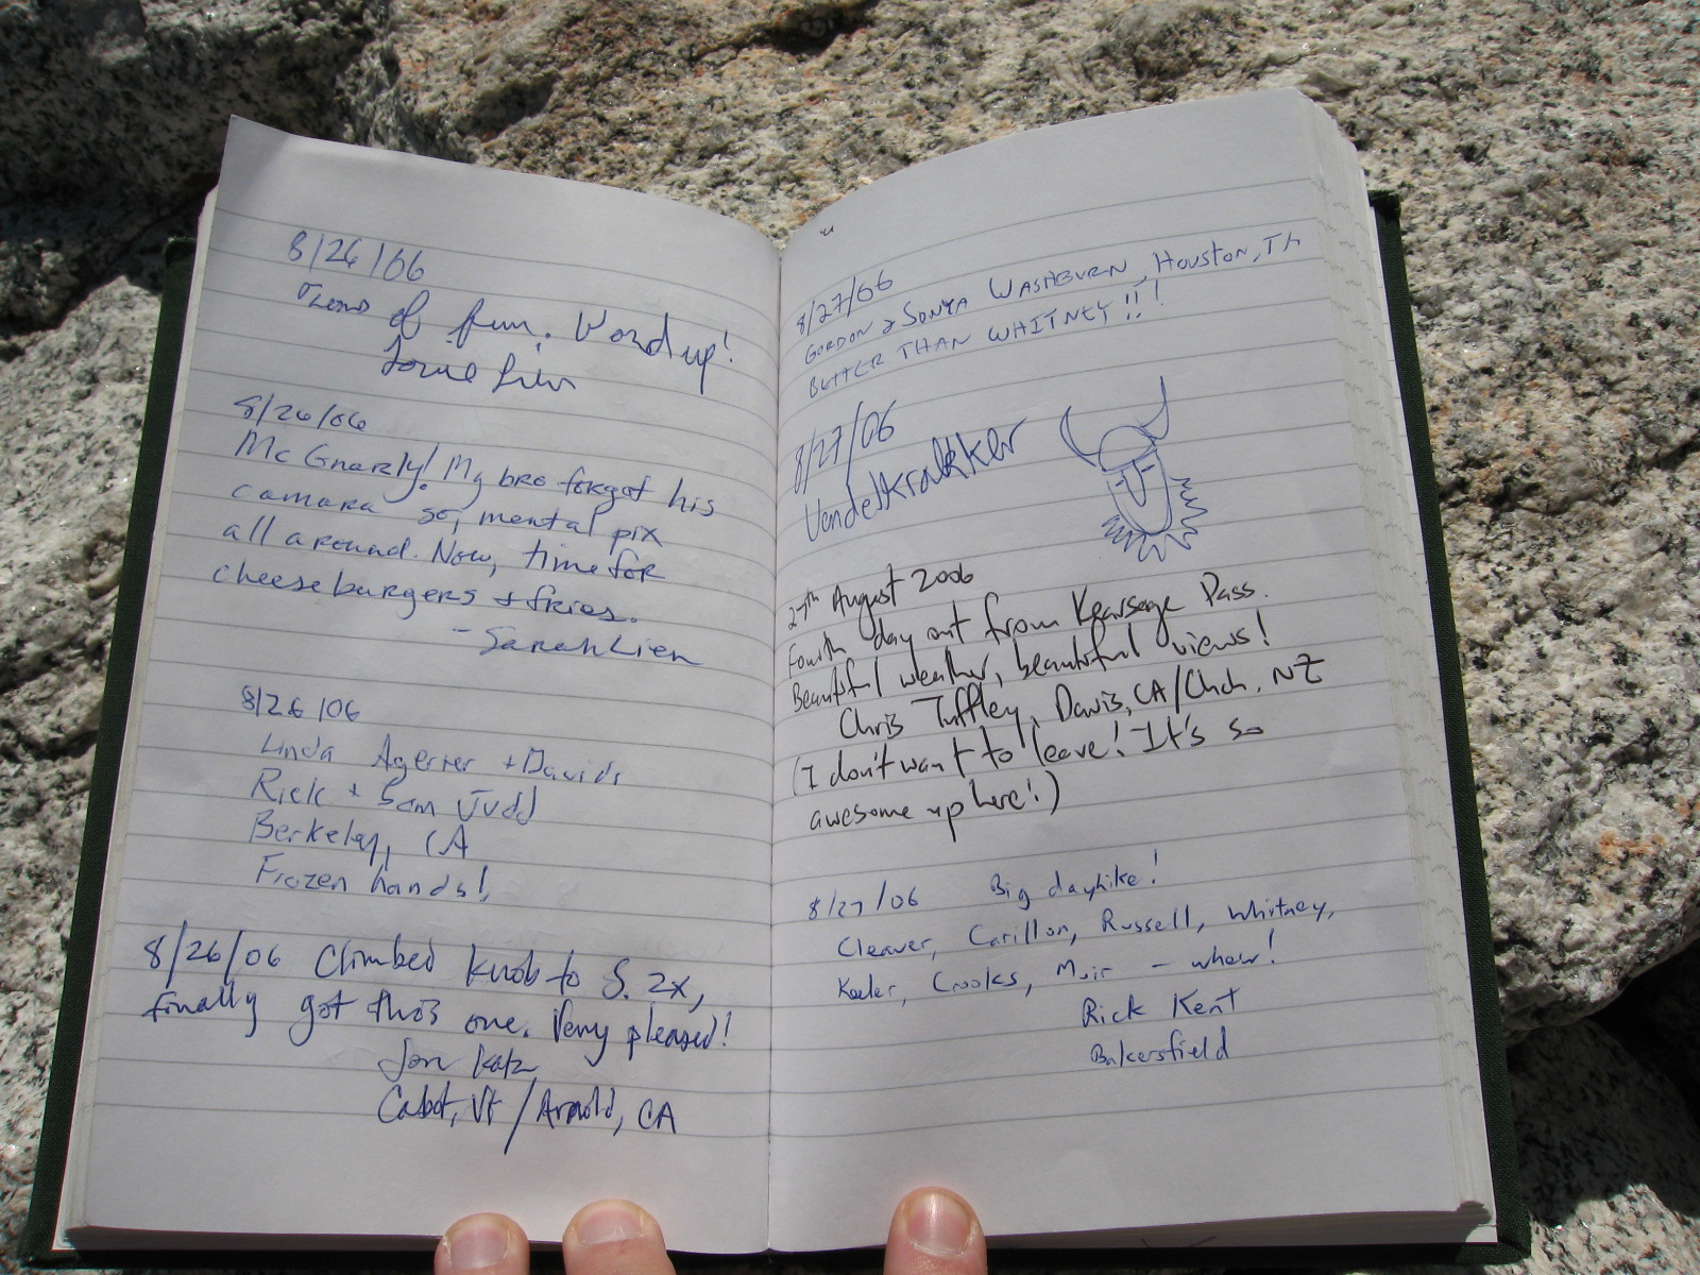 8/26/06
of fun. Word up!
8/26/06
McGnarly! My bro forgot his
camara so, mental pix
all around. Now, time for
cheeseburgers + fries.
- Sarah Lien
8/26/06
Linda Agerter + David
Rick + Sam Judd
Berkeley, CA
Frozen hands!
8/26/06 Climbed knob to S. 2x,
finally got this one. Very pleased!
Jon Katz
Cabot, Vt / Arnold, CA
8/27/06
GORDON & SONYA WASHBURN, HOUSTON,
BETTER THAN WHITNEY!!!
8/27/06
27th August 2006
Fourth day out from Kearsage Pass.
Beautiful weather, beautiful views!
Chris Tuffley, Davis, CA/Chch, NZ
(I don't want to leave! It's so
awesome up here!)
8/27/06 Big dayhike!
Cleaver, Carillon, Russell, Whitney,
Keeler, Crooks, Muir - whew!
Rick Kent
Bakersfield